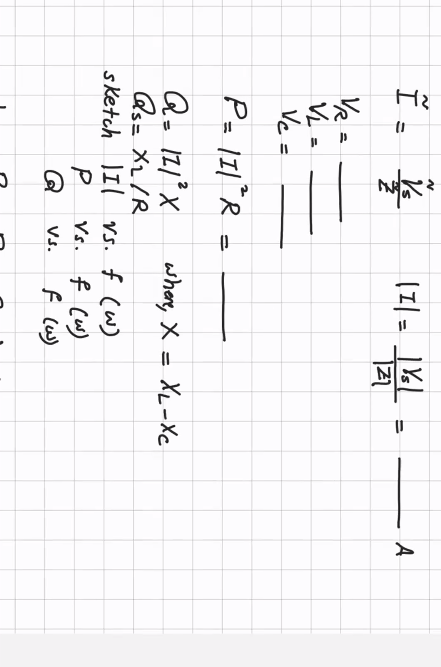 Ĩ = Ṽs / Z̃   |I| = |Vs| / |Z| = ____ A
VR = ____
VL = ____
VC = ____
P = |I|² R = ____
Q = |I|² X   where, X = XL - XC
Qs = XL/R
sketch |I| vs. f (ω)
P vs. f (ω)
Q vs. f (ω)